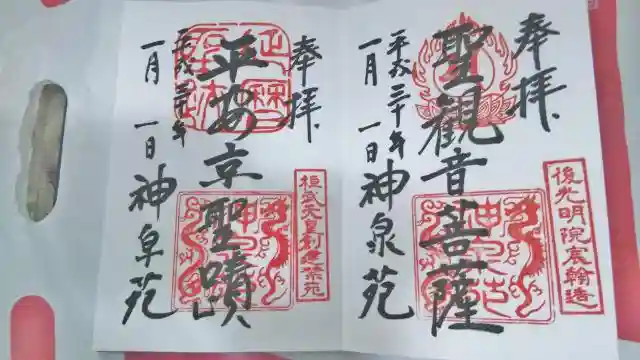 奉拝
聖観音菩薩
平成三十年
一月一日
神泉苑
後光明院宸翰造
奉拝
平安京聖蹟
平成三十年
一月一日
神泉苑
桓武天皇創建禁苑